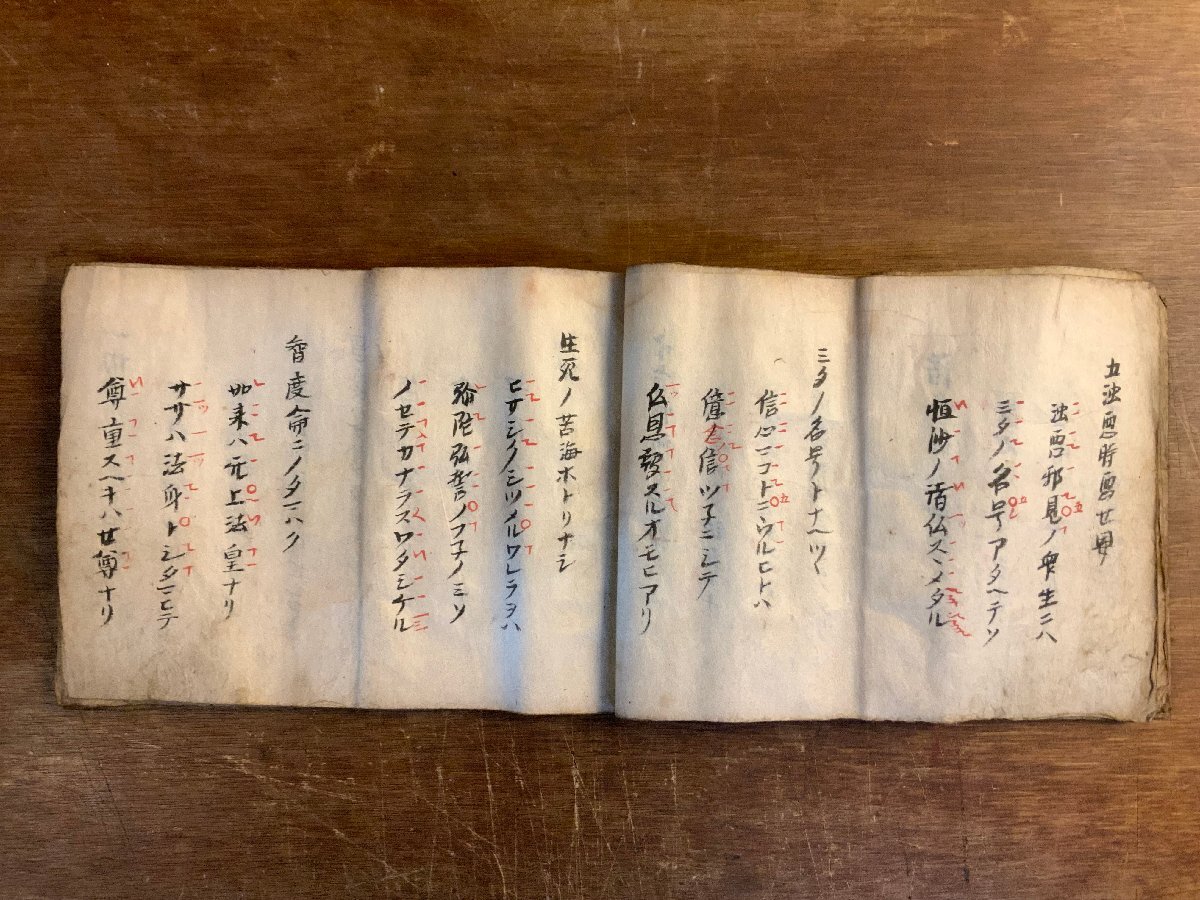 五浊悪時悪世界
浊悪邪見ノ衆生ニハ
ミタノ名号アタヘテソ
恒沙ノ諸仏スヽメタル
ミタノ名号トナヘツヽ
信心マコトニウルヒトハ
憶念信ツ子ニシテ
仏恩報スルオモヒアリ
生死ノ苦海ホトリナシ
ヒサシクシツメルワレラヲハ
弥陀弘誓ノフ子ノミソ
ノセテカナラスワタシケル
智度論ニノタマハク
如来ハ无上法皇ナリ
ササハ法臣トシタマヒテ
尊重スヘキハ世尊ナリ